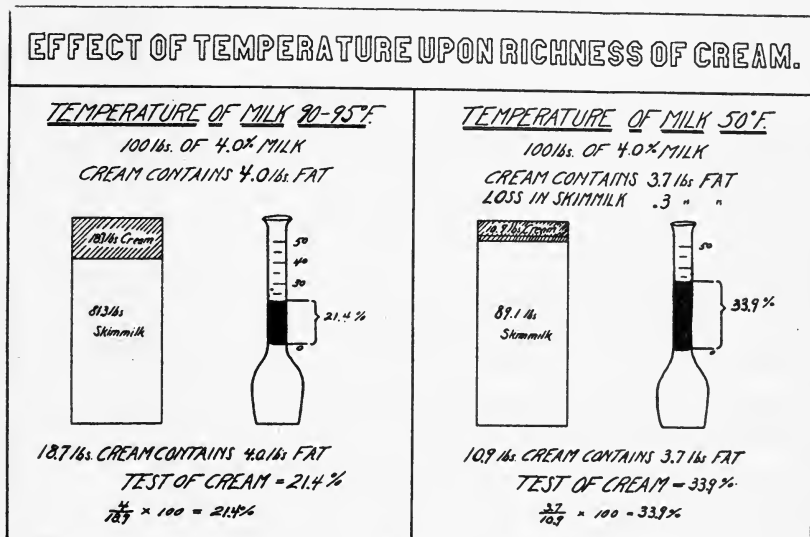 EFFECT OF TEMPERATURE UPON RICHNESS OF CREAM.
TEMPERATURE OF MILK 90-95°F.
100 lbs. OF 4.0% MILK
CREAM CONTAINS 4.0 lbs. FAT
18.7 lbs Cream
81.3 lbs
Skimmilk
50
40
30
21.4%
0
18.7 lbs. CREAM CONTAINS 4.0 lbs FAT
TEST OF CREAM = 21.4%
4/18.9 × 100 = 21.4%
TEMPERATURE OF MILK 50°F.
100 lbs. OF 4.0% MILK
CREAM CONTAINS 3.7 lbs FAT
LOSS IN SKIMMILK .3 " "
10.9 lbs Cream
89.1 lbs
Skimmilk
50
33.9%
0
10.9 lbs. CREAM CONTAINS 3.7 lbs FAT
TEST OF CREAM = 33.9%.
3.7/10.9 × 100 = 33.9%